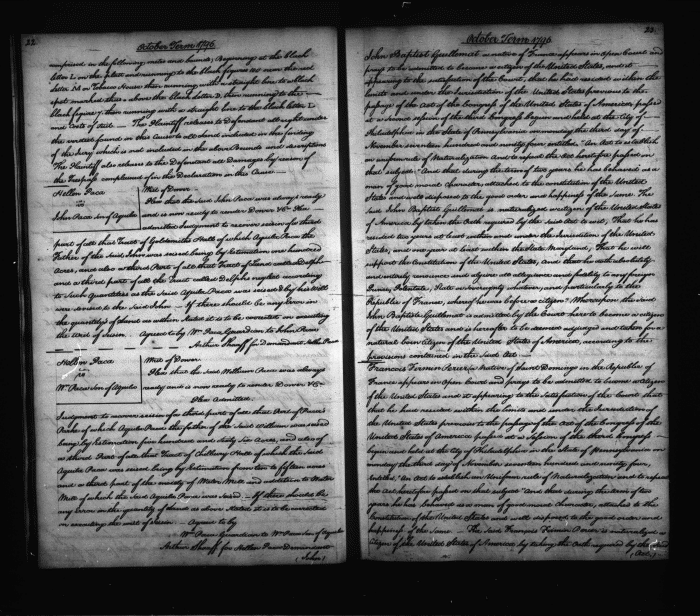 22
October Term 1796
comprised in the following metes and bounds; Beginning at the black
letter L on the plats and running to the black figure
letter M or Tobacco House then running with a straight line to a black
spot marked three a above the black letter D, then running to the
black figure 7, then running with a straight line to the black letter L
and Costs of suit — The Plaintiff releases to Defendant all right under
the verdict found in this Cause to all land included in the finding
of the Jury which is not included in the above Bounds and descriptions
The Plaintiff also releases to the Defendant all Damages by reason of
the Trespass complained of in the Declaration in this Cause
Hellen Paca
vs
John Paca Son of Aquila
Writ of Dower
Now that the said John Paca was always ready
and is now ready to render Dower &ca. Now
admitted Judgment to recover seizin of a third
part of all that Tract of Goldsmiths Hall of which Aquila Paca the
Father of the said John was seized being by Estimation one hundred
Acres, and also a third Part of all that Tract of Land called Delph
and a third part of all the Tract called Delphs neglect according
to such Quantities as the said Aquila Paca was seized & by his Will
were devised to the said John — If there should be any Error in
the quantity of thirds as within stated it is to be corrected on executing
the writ of seizin Agreed to by Wm. Paca Guardian to John Paca
Arthur Shaaff for Demandant Hellen Paca
Hellen Paca
vs
Wm. Paca Son of Aquila
Writ of Dower
Now that the said William Paca was always
ready and is now ready to render Dower &ca.
Now Admitted
Judgment to recover seizin of a third part of all that Part of Paca's
Park of which Aquila Paca the father of the said William was seized
being by Estimation five hundred and sixty six Acres, and also of
a third Part of all that Tract of Chilbury Hall of which the said
Aquila Paca was seized being by Estimation from ten to fifteen acres
and a third part of the moiety of Water Mill and addition to Water
Mill of which the said Aquila Paca was seized — If there should be
any error in the quantity of thirds as above stated it is to be corrected
on executing the writ of seizin — Agreed to by
Wm. Paca Guardian to Wm. Paca Son of Aquila
Arthur Shaaff for Hellen Paca Demandant
(John)
October Term 1796
John Baptist Guillemot a native of France appears in open Court and
prays to be admitted to become a citizen of the United States, and it
appearing to the satisfaction of the Court, that he had resided within the
limits and under the Jurisdiction of the United States previous to the
passage of the Act of the Congress of the United States of America, passed
at a Second session of the third Congress begun and held at the City of
Philadelphia in the State of Pennsylvania on monday the third day of
November seventeen hundred and ninety four entitled "An Act to establish
an uniform rule of Naturalization and to repeal the Act heretofore passed on
that subject" And that during the term of two years he has behaved as a
man of good moral character, attached to the constitution of the United
States and well disposed to the good order and happiness of the same. The
said John Baptist Guillemot is naturalized a citizen of the United States
of America by taking the Oath required by the said Act to wit, That he has
resided two years at least within and under the Jurisdiction of the United
States, and one year at least within the State Maryland, That he will
support the Constitution of the United States, and that he doth absolutely
and entirely renounce and abjure all allegiance and fidelity to any foreign
Prince, Potentate, State or sovereignty whatever, and particularly to the
Republic of France, whereof he was before a citizen. Whereupon the said
John Baptist Guillemot is admitted by the Court here to become a citizen
of the United States and is hereafter to be deemed adjudged and taken for a
natural born Citizen of the United States of America, according to the
provisions contained in the said Act —
Francois Firmin a Native of Saint Domingo in the Republic of
France appears in Open Court and prays to be admitted to become a citizen
of the United States and it appearing to the Satisfaction of the Court that
that he had resided within the limits and under the Jurisdiction of
the United States previous to the passage of the Act of the Congress of the
United States of America passed at a Session of the third Congress
begun and held at the City of Philadelphia in the State of Pennsylvania on
monday the third day of November seventeen hundred and ninety four,
entitled, "An Act to establish an Uniform rule of Naturalization and to repeal
the Act heretofore passed on that subject" And that during the term of two
years he has behaved as a man of good moral character, attached to the
Constitution of the United States and well disposed to the good order and
happiness of the same. The said Francois Firmin is naturalized a
Citizen of the United States of America by taking the Oath required by the said
(Act)